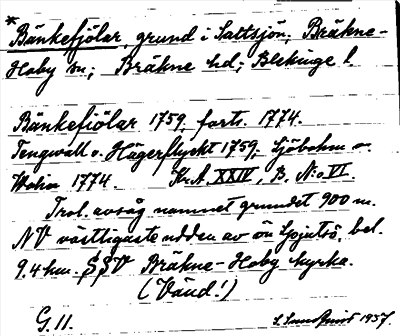 * Bänkefjölar, grund i Saltsjön; Bräkne-
Hoby sn; Bräkne hd; Blekinge l.
Bänkefiölar 1759, forts. 1774.
Tengwall o. Hägerflyckt 1759, Sjöbohm o.
1774. Kr. A. XXIV, B. N:o VI.
Trol. avsåg namnet grundet 900 m.
NV västligaste udden av ön bel.
9.4 km. SSV Bräkne-Hoby kyrka.
(Vänd!)
G. 11. 1937.